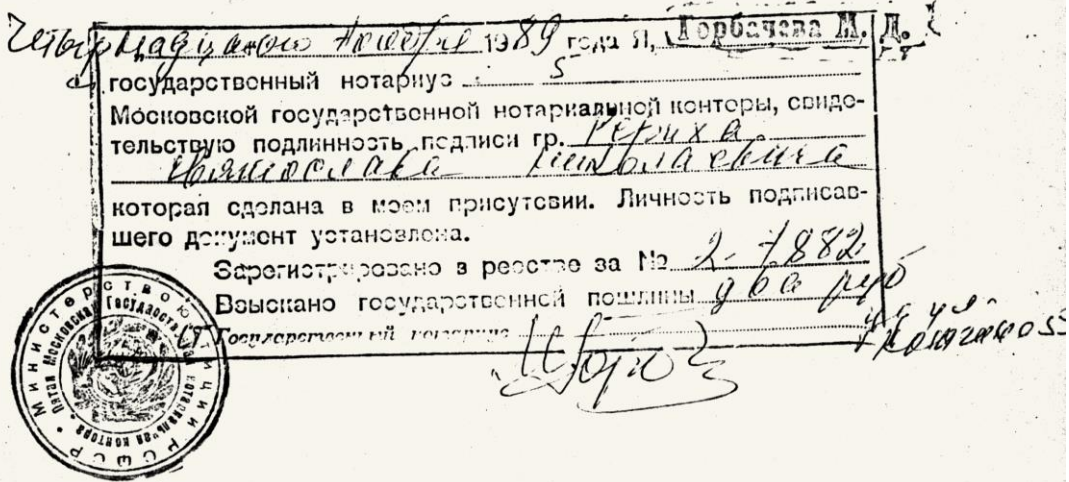 Четырнадцатого ноября 1989 года Я, Горбачева М. Д.
государственный нотариус 5
Московской государственной нотариальной конторы, свиде-
тельствую подлинность подписи гр. Рериха
Святослава Николаевича
которая сделана в моем присутсвии. Личность подписав-
шего документ установлена.
Зарегистрировано в реестре за № 2-7882
Взыскано государственной пошлины два руб
Государственный нотариус
Министерство юстиции РСФСР
Пятая Московская Государственная нотариальная контора